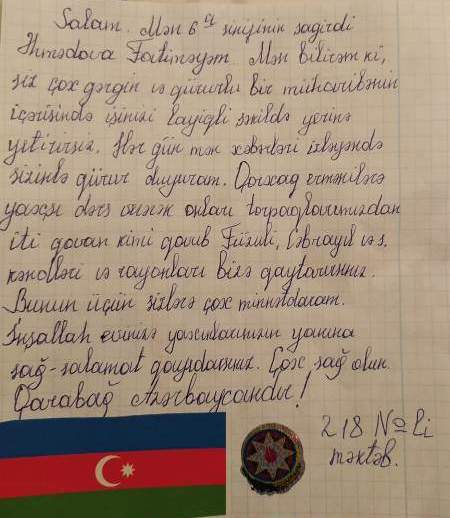 Salam. Mən 6ᵃ sinifinin şagirdi
Əhmədova Fatiməyəm. Mən bilirəm ki,
siz çox gərgin və gürurlu bir müharibənin
içərisində işinizi layiqli şəkildə yerinə
yetirirsiz. Hər gün mən xəbərləri izləyəndə
sizinlə gürur duyuram. Qorxaq ermənilərə
yaxşı dərs verərək onları torpaqlarımızdan
iti qovan kimi qovub Füzuli, Cəbrayıl və s.
kəndləri və rayonları bizə qaytarırsınız.
Bunun üçün sizlərə çox minnətdaram.
İnşallah evinizə yaxınlarınızın yanına
sağ-salamat qayıdarsınız. Çox sağ olun.
Qarabağ Azərbaycandır!
218 № li
məktəb.